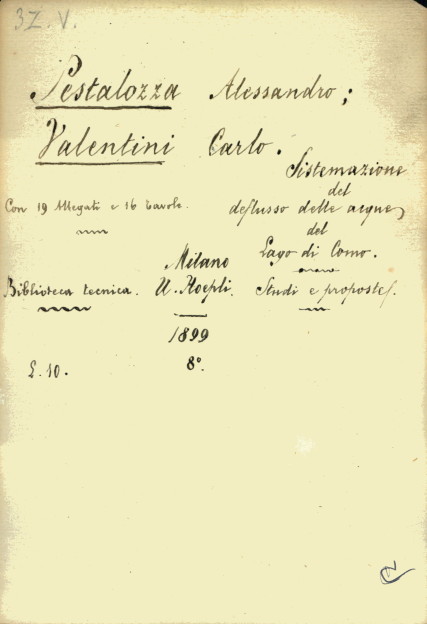 3Z.V.
Pestalozza Alessandro;
Valentini Carlo.
Sistemazione
del
deflusso delle acque
del
Lago di Como.
Studi e proposte.
Con 19 Allegati e 16 tavole.
Biblioteca tecnica.
Milano
U. Hoepli.
1899
8°.
L. 10.